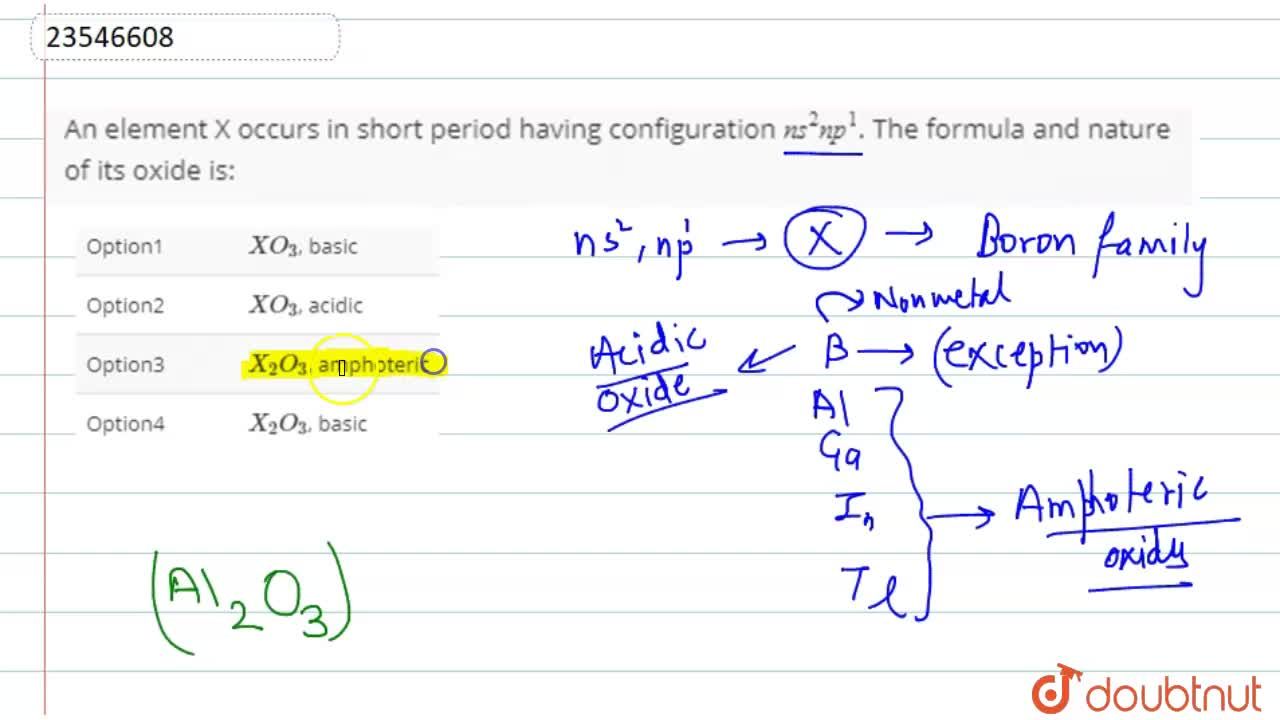 23546608
An element X occurs in short period having configuration ns²np¹. The formula and nature
of its oxide is:
Option1 XO₃, basic
Option2 XO₃, acidic
Option3 X₂O₃, amphoteric
Option4 X₂O₃, basic
ns², np¹ → X → Boron family
→ Nonmetal
Acidic oxide ← B → (exception)
Al
Ga
In
Tl
→ Amphoteric
oxides
(Al₂O₃)
doubtnut